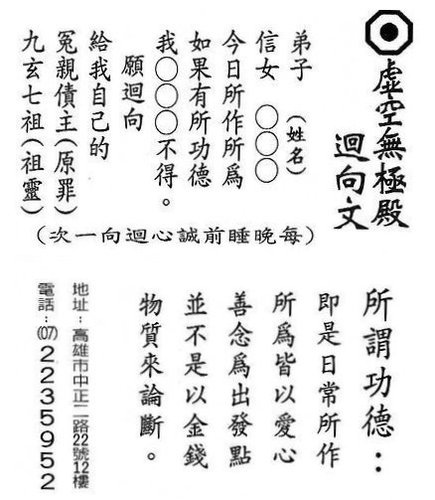 虛空無極殿
迴向文
弟子（姓名）
信女 ○○○
今日所作所爲
如果有所功德
我○○○不得。
願迴向
給我自己的
冤親債主(原罪)
九玄七祖(祖靈)
（每晚睡前誠心迴向一次）
所謂功德：
即是日常所作
所爲皆以愛心
善念爲出發點
並不是以金錢
物質來論斷。
地址：高雄市中正二路22號12樓
電話：(07)2235952